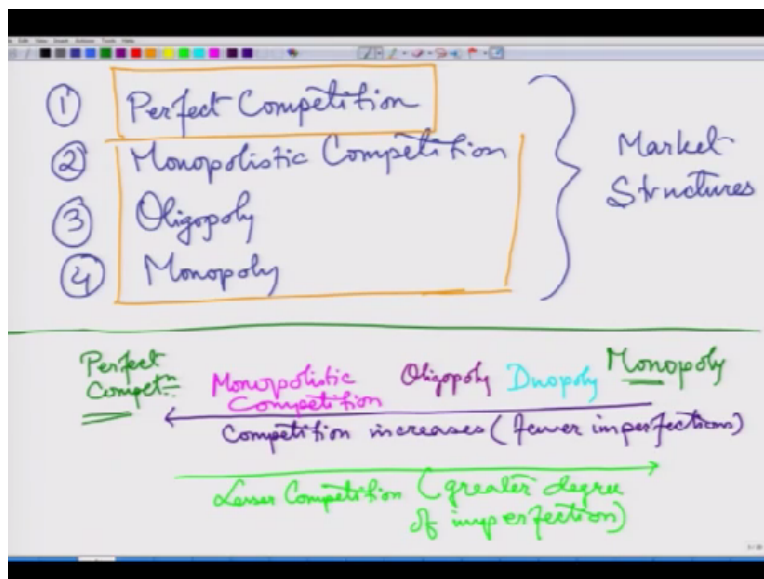 ① Perfect Competition
② Monopolistic Competition
③ Oligopoly
④ Monopoly
Market
Structures
Perfect
Competn
Monopolistic
Competition
Oligopoly
Duopoly
Monopoly
Competition increases (fewer imperfections)
Lesser Competition (greater degree
of imperfection)